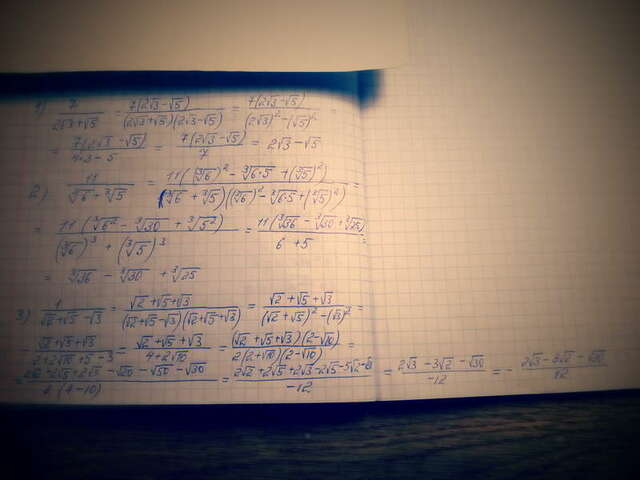 1) 7/(2√3+√5) = 7(2√3-√5)/((2√3+√5)(2√3-√5)) = 7(2√3-√5)/((2√3)²-(√5)²) =
= 7(2√3-√5)/(4·3-5) = 7(2√3-√5)/7 = 2√3-√5
2) 11/(∛6+∛5) = 11((∛6)²-∛6·5+(∛5)²)/((∛6+∛5)((∛6)²-∛6·5+(∛5)²)) =
= 11(∛6²-∛30+∛5²)/((∛6)³+(∛5)³) = 11(∛36-∛30+∛25)/(6+5) =
= ∛36-∛30+∛25
3) 1/(√2+√5-√3) = (√2+√5+√3)/((√2+√5-√3)(√2+√5+√3)) = (√2+√5+√3)/((√2+√5)²-(√3)²) =
(√2+√5+√3)/(2+2√10+5-3) = (√2+√5+√3)/(4+2√10) = (√2+√5+√3)(2-√10)/(2(2+√10)(2-√10)) =
= (2√2+2√5+2√3-√20-√50-√30)/(2(4-10)) = (2√2+2√5+2√3-2√5-5√2-√30)/-12 = (2√3-3√2-√30)/-12 = -(2√3-3√2-√30)/12